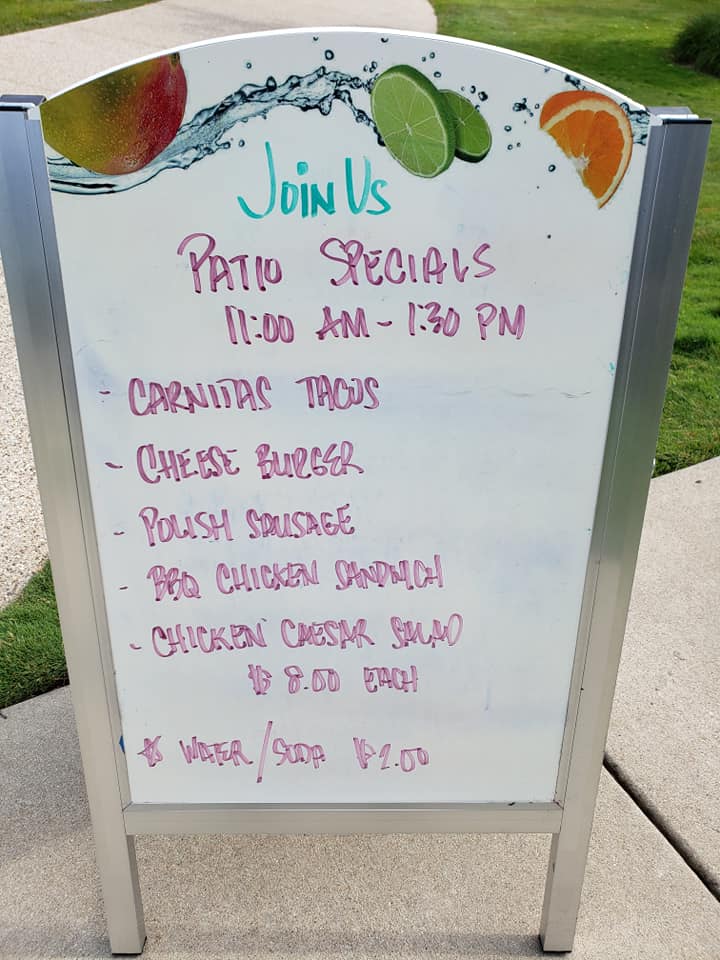 Join Us
PATIO SPECIALS
11:00 AM - 1:30 PM
- CARNITAS TACOS
- CHEESE BURGER
- POLISH SAUSAGE
- BBQ CHICKEN SANDWICH
- CHICKEN CAESAR SALAD
$ 8.00 EACH
WATER / SODA $2.00